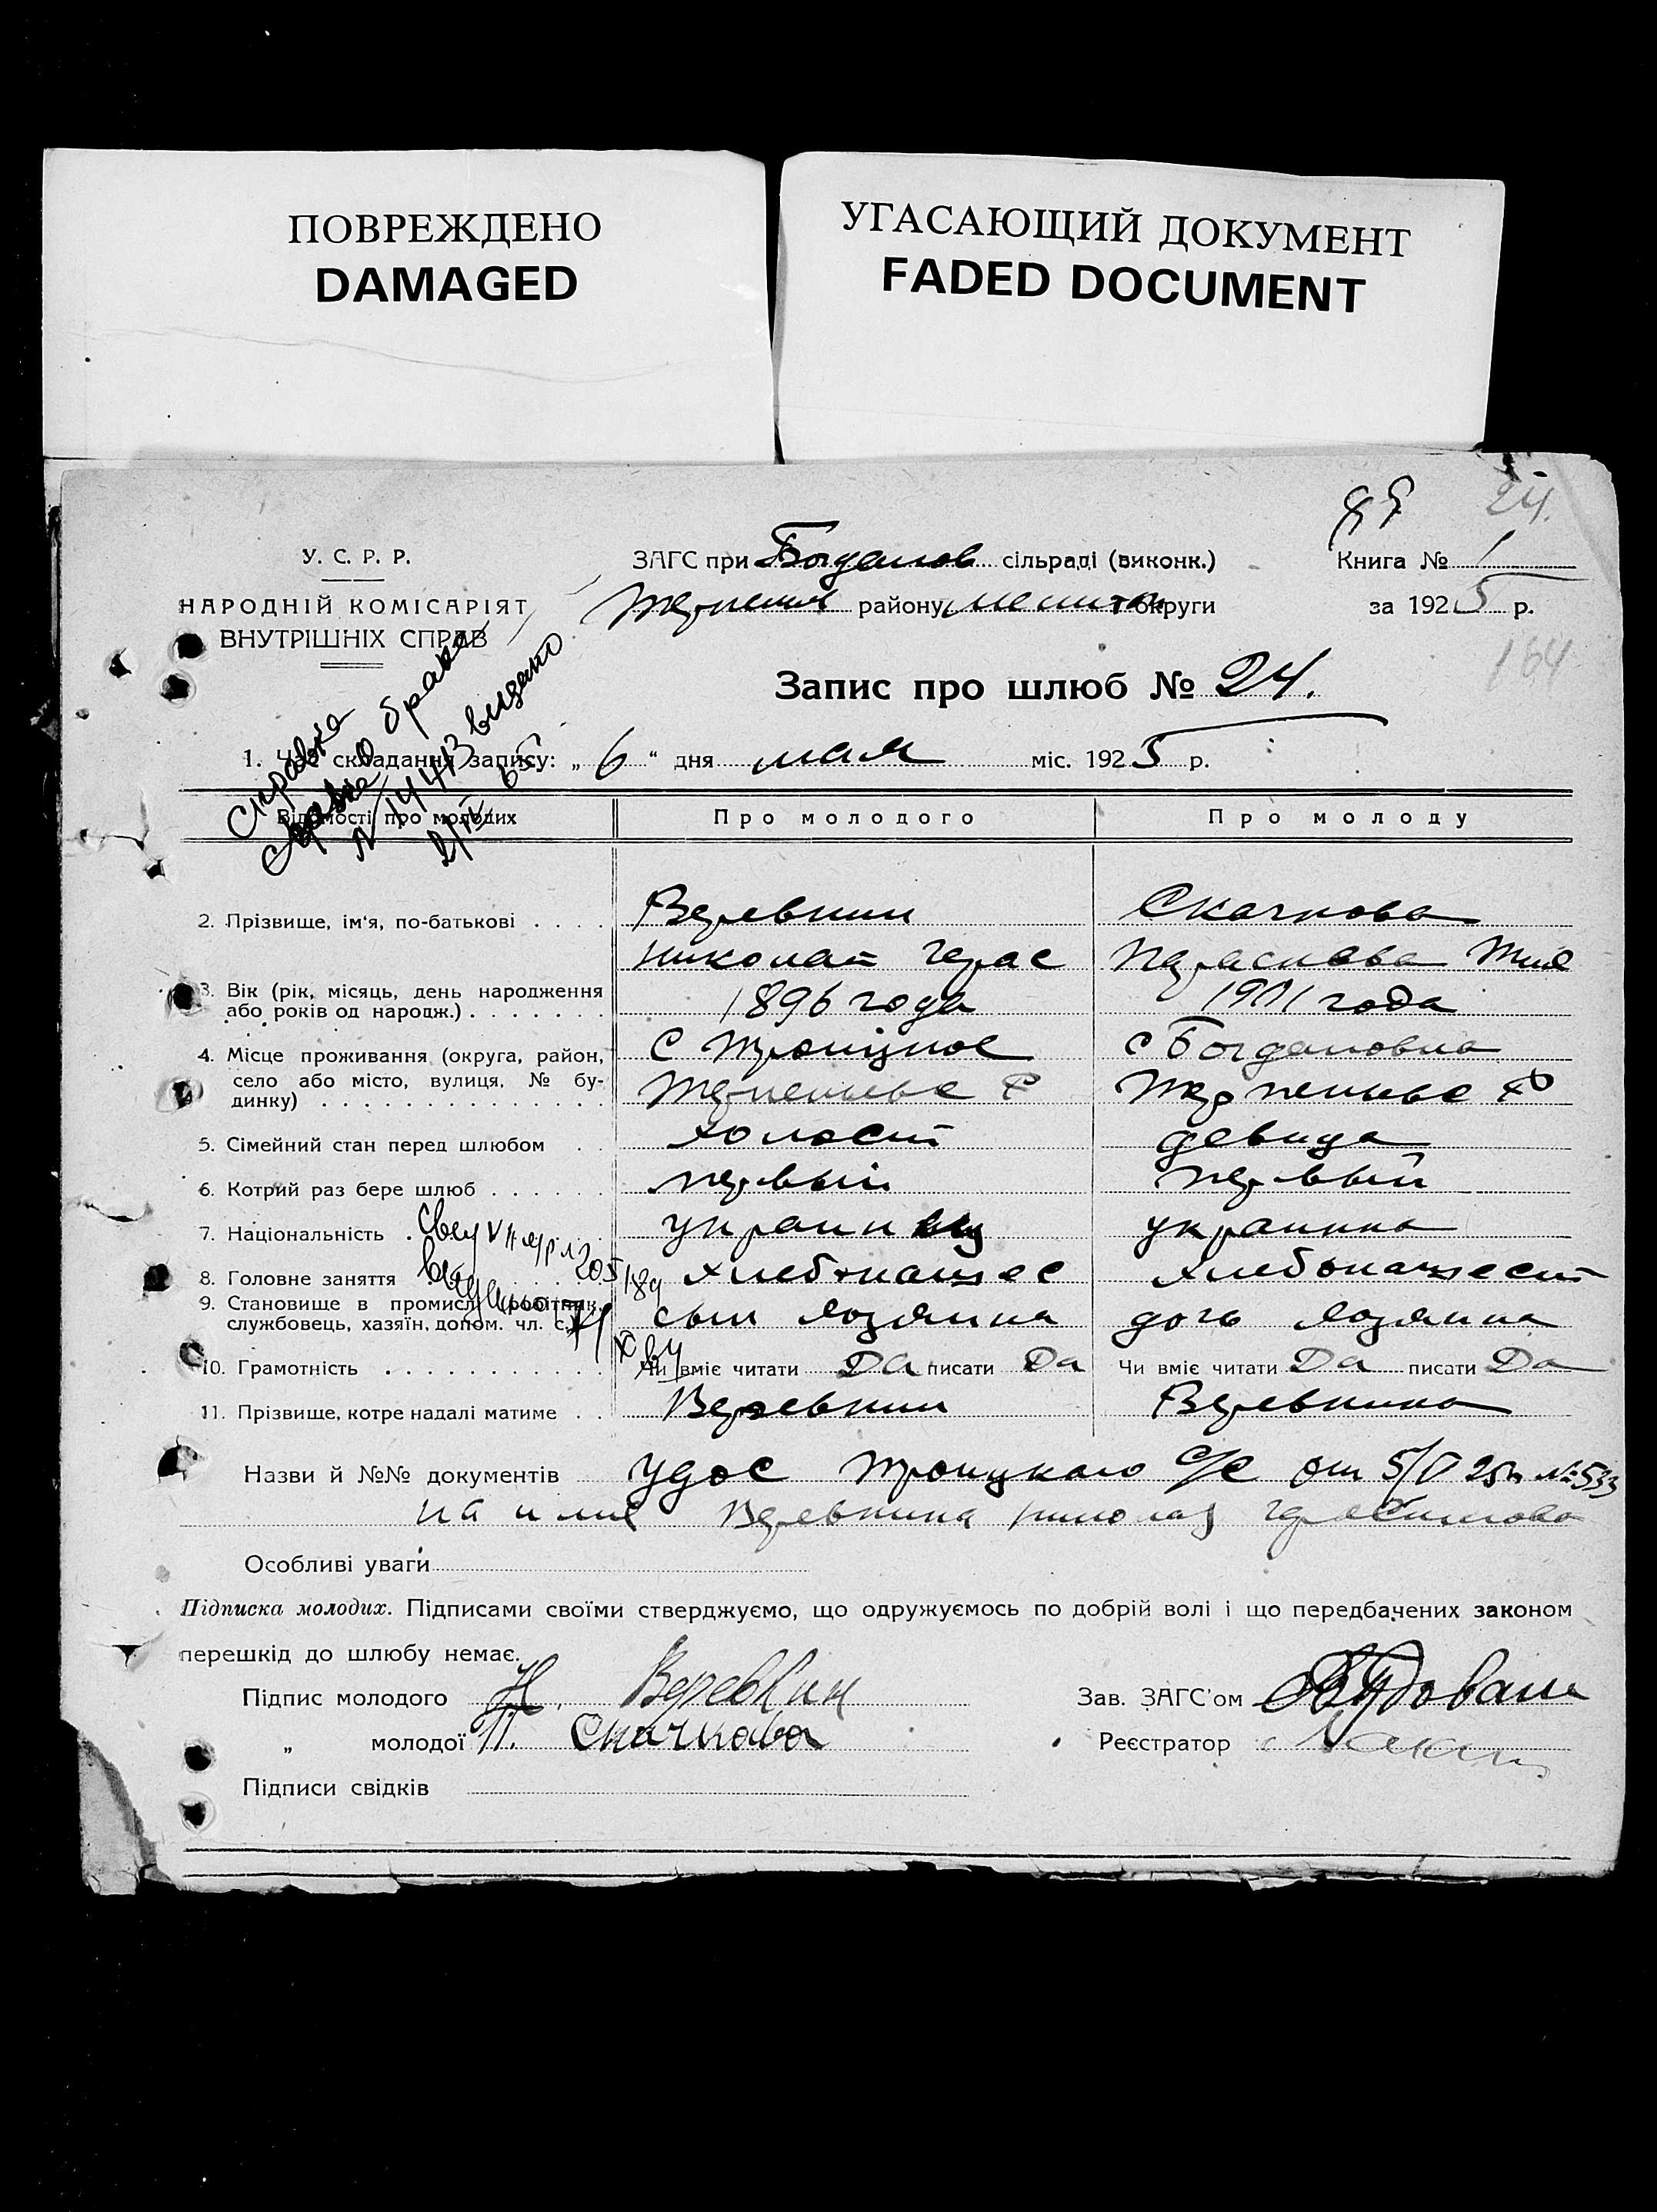 ПОВРЕЖДЕНО
DAMAGED
УГАСАЮЩИЙ ДОКУМЕНТ
FADED DOCUMENT
24.
У. С. Р. Р.
НАРОДНІЙ КОМІСАРІЯТ
ВНУТРІШНІХ СПРАВ
ЗАГС при Богданов сільраді (виконк.)
району округи
Книга № 1
за 1925 р.
164
Запис про шлюб № 24.
Справка
о браке
выдано
1. Час складання запису: „ 6 “ дня мая міс. 1925 р.
Відомості про молодих
Про молодого
Про молоду
2. Прізвище, ім'я, по-батькові . . . . Веревкин Скачкова
николай герас
3. Вік (рік, місяць, день народження
або років од народж.) . . . . . . . 1896 года 1901 года
4. Місце проживання (округа, район, с Троицкое с Богдановка
село або місто, вулиця, № бу-
динку) . . . . . . . . . . . . . . .
5. Сімейний стан перед шлюбом . . холост девица
6. Котрий раз бере шлюб . . . . . . первый первый
7. Національність . украинец украинка
8. Головне заняття хлебопашес хлебопашест
9. Становище в промислі (робітник,
службовець, хазяїн, допом. чл. с. сын хозяина дочь хозяина
10. Грамотність . . . . . . . . . . . Чи вміє читати Да писати Да Чи вміє читати Да писати Да
11. Прізвище, котре надалі матиме . . Веревкин Веревкина
Назви й №№ документів удос Троицкаго с/с от 5/V 25г №533
на имя Веревкина николая герасимова
Особливі уваги
Підписка молодих. Підписами своїми стверджуємо, що одружуємось по добрій волі і що передбачених законом
перешкід до шлюбу немає.
Підпис молодого Н. Веревкин
Зав. ЗАГС'ом
„ молодої П. Скачкова
Реєстратор
Підписи свідків